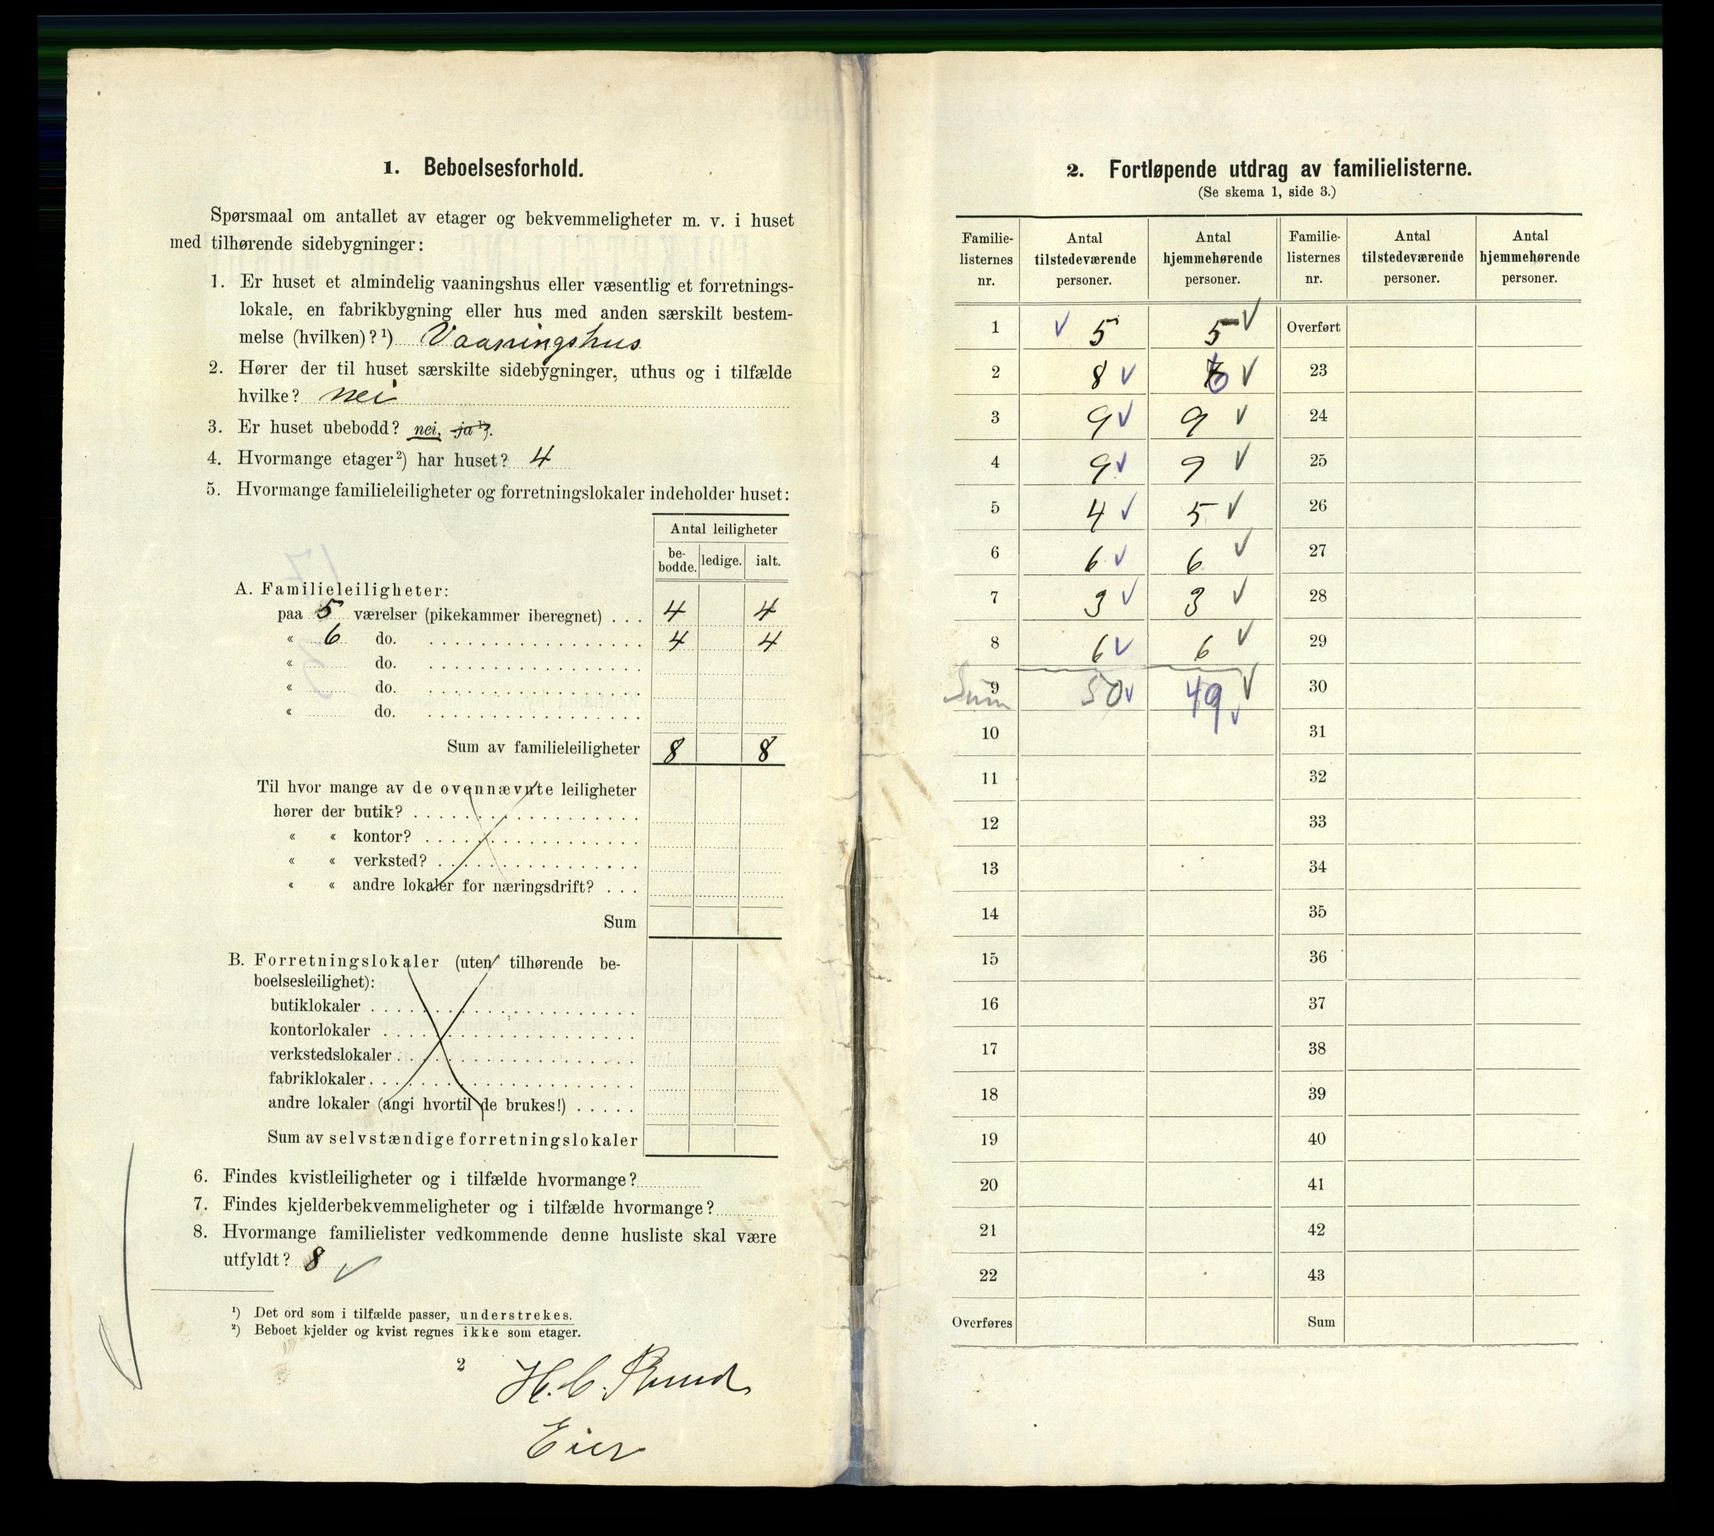 1. Beboelsesforhold.
Spørsmaal om antallet av etager og bekvemmeligheter m. v. i huset
med tilhørende sidebygninger:
1. Er huset et almindelig vaaningshus eller væsentlig et forretnings-
lokale, en fabrikbygning eller hus med anden særskilt bestem-
melse (hvilken)?¹) Vaaningshus
2. Hører der til huset særskilte sidebygninger, uthus og i tilfælde
hvilke? nei
3. Er huset ubebodd? nei, ja¹).
4. Hvormange etager²) har huset? 4
5. Hvormange familieleiligheter og forretningslokaler indeholder huset:
Antal leiligheter
be-bodde. ledige. ialt.
A. Familieleiligheter:
paa 5 værelser (pikekammer iberegnet) . . . 4 4
« 6 do. 4 4
« do.
« do.
« do.
Sum av familieleiligheter 8 8
Til hvor mange av de ovennævnte leiligheter
hører der butik?
« « kontor?
« « verksted?
« « andre lokaler for næringsdrift? . . .
Sum
B. Forretningslokaler (uten tilhørende be-
boelsesleilighet):
butiklokaler
kontorlokaler
verkstedslokaler
fabriklokaler
andre lokaler (angi hvortil de brukes!)
Sum av selvstændige forretningslokaler
6. Findes kvistleiligheter og i tilfælde hvormange?
7. Findes kjelderbekvemmeligheter og i tilfælde hvormange?
8. Hvormange familielister vedkommende denne husliste skal være
utfyldt? 8 ✓
¹) Det ord som i tilfælde passer, understrekes.
²) Beboet kjelder og kvist regnes ikke som etager.
2
H. C.
Eier
2. Fortløpende utdrag av familielisterne.
(Se skema 1, side 3.)
Familie-listernes nr. Antal tilstedeværende personer. Antal hjemmehørende personer. Familie-listernes nr. Antal tilstedeværende personer. Antal hjemmehørende personer.
1 ✓ 5 5 ✓ Overført
2 8 ✓ 6 ✓ 23
3 9 ✓ 9 ✓ 24
4 9 ✓ 9 ✓ 25
5 4 ✓ 5 ✓ 26
6 6 ✓ 6 ✓ 27
7 3 ✓ 3 ✓ 28
8 6 ✓ 6 ✓ 29
Sum 9 50 ✓ 49 ✓ ✓ 30
10 31
11 32
12 33
13 34
14 35
15 36
16 37
17 38
18 39
19 40
20 41
21 42
22 43
Overføres Sum